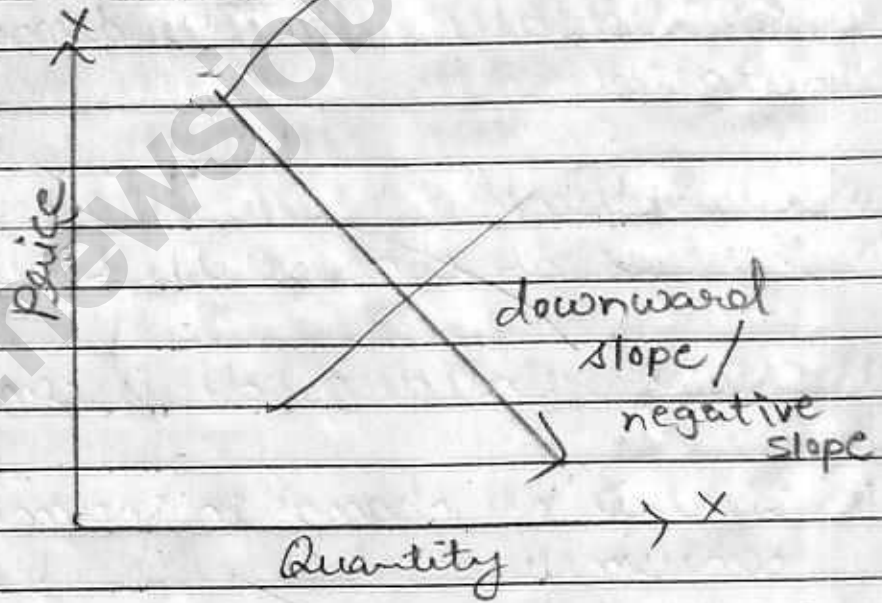 X
Price
downward
slope /
negative
slope
X
Quantity
.newsjob